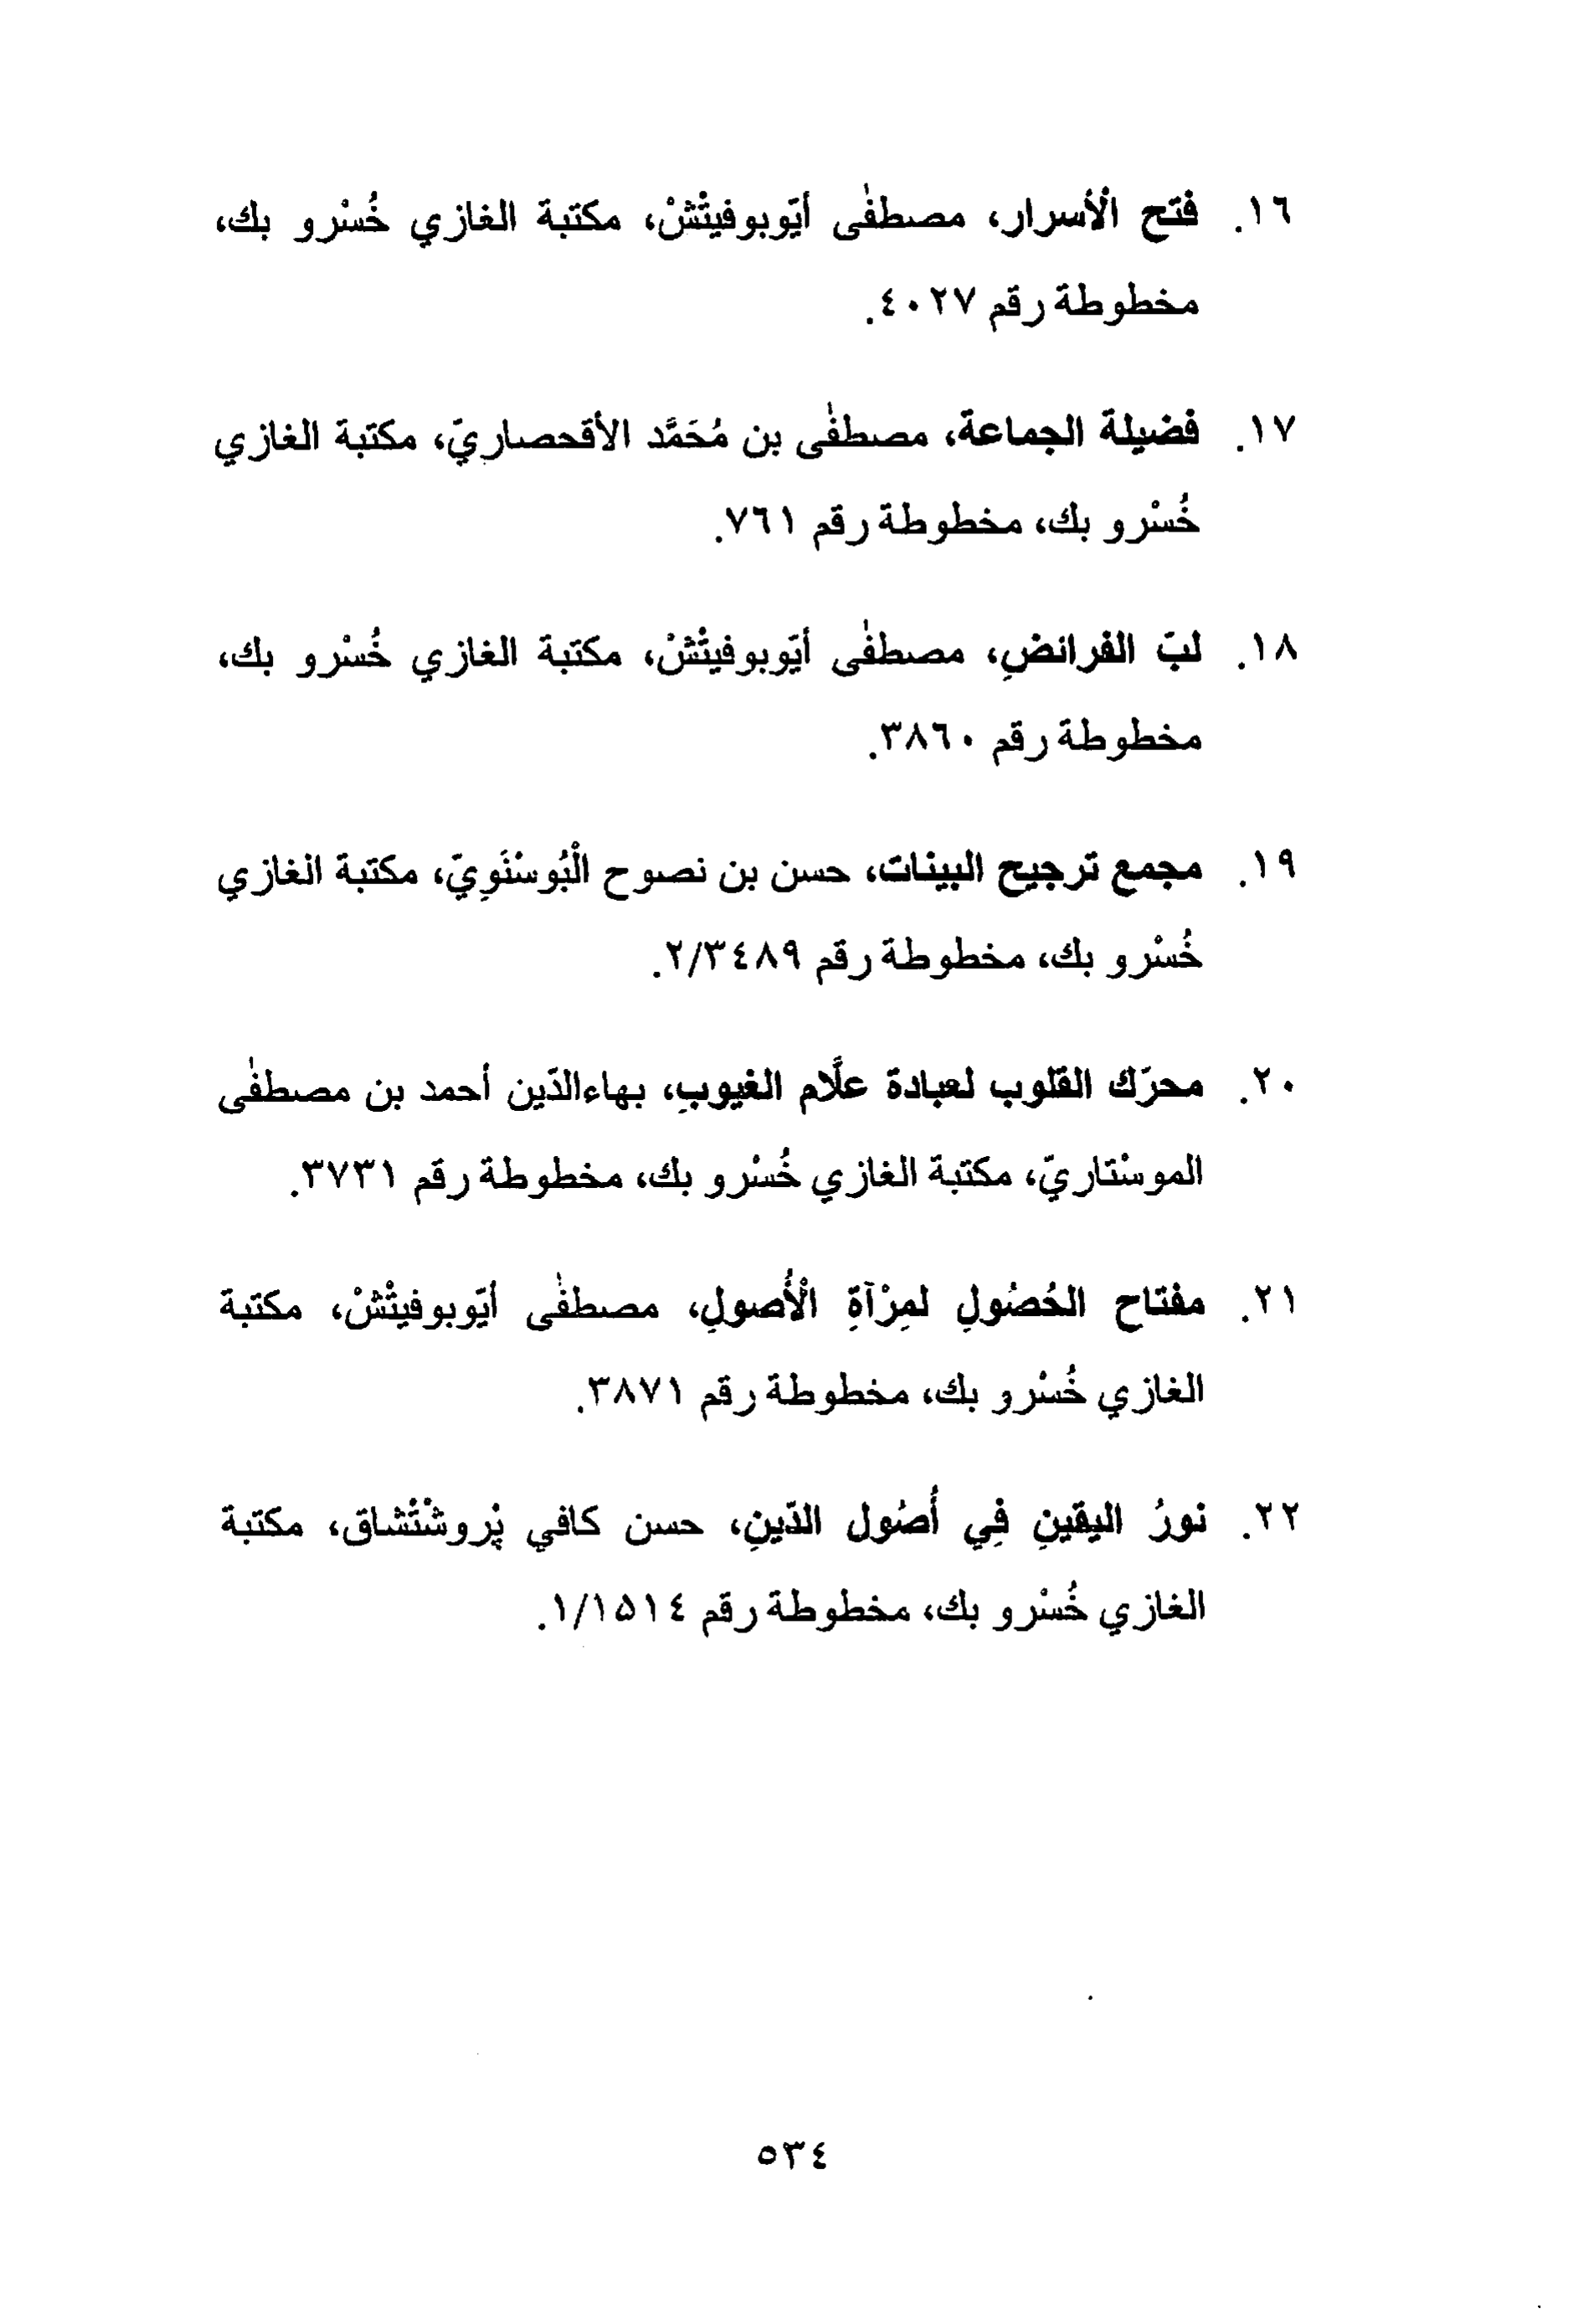 ١٦. فتح الْأسرار، مصطفٰى أيّوبوفيتْشْ، مكتبة الغازي خُسْرو بك،
مخطوطة رقم ٤٠٢٧.
١٧. فضيلة الجماعة، مصطفٰى بن مُحَمَّد الأقحصاريّ، مكتبة الغازي
خُسْرو بك، مخطوطة رقم ٧٦١.
١٨. لبّ الفرائضِ، مصطفٰى أيّوبوفيتْشْ، مكتبة الغازي خُسْرو بك،
مخطوطة رقم ٣٨٦٠.
١٩. مجمع ترجيح البينات، حسن بن نصوح الْبُوسْنَوِيّ، مكتبة الغازي
خُسْرو بك، مخطوطة رقم ٢/٣٤٨٩.
٢٠. محرّك القلوب لعبادة علَّام الغيوبِ، بهاءالدّين أحمد بن مصطفٰى
الموسْتاريّ، مكتبة الغازي خُسْرو بك، مخطوطة رقم ٣٧٣١.
٢١. مفتاح الحُصُولِ لمِرْآةِ الْأُصولِ، مصطفٰى أيّوبوفيتْشْ، مكتبة
الغازي خُسْرو بك، مخطوطة رقم ٣٨٧١.
٢٢. نورُ اليقينِ فِي أُصُول الدّينِ، حسن كافي پْروشْتْشاق، مكتبة
الغازي خُسْرو بك، مخطوطة رقم ١/١٥١٤.
٥٣٤